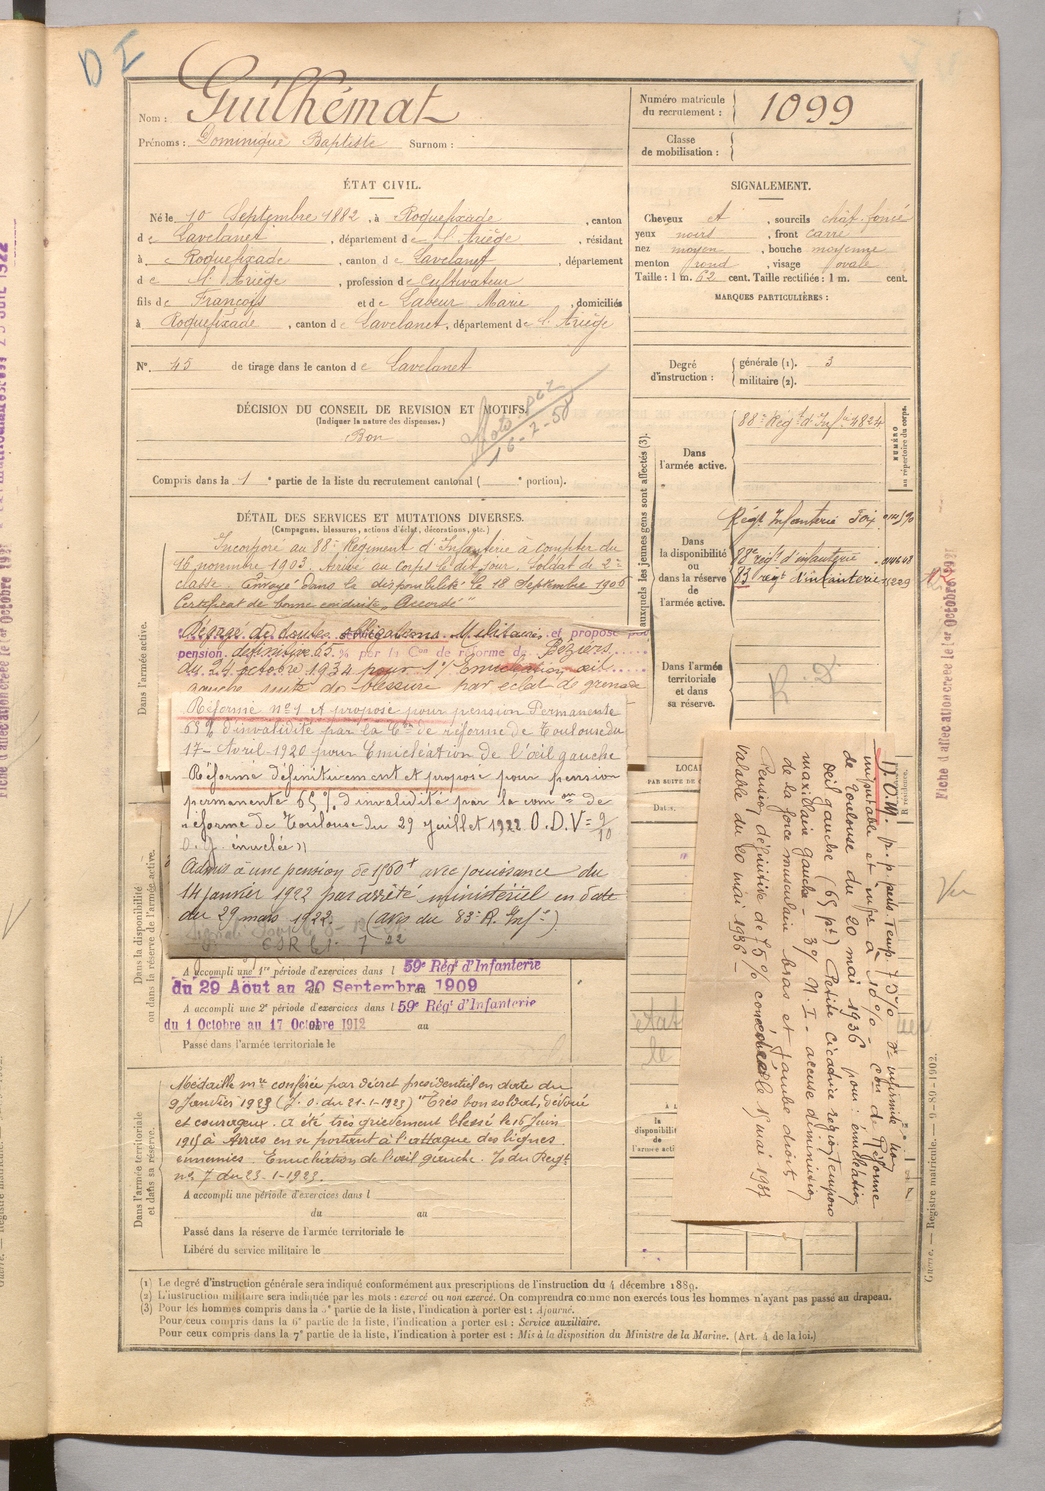 DI
Nom : Guilhémat
Numéro matricule du recrutement : 1099
Prénoms : Dominique Baptiste Surnom :
Classe de mobilisation :
ÉTAT CIVIL.
Né le 10 Septembre 1882, à Roquefixade, canton
de Lavelanet, département de l'Ariège, résidant
à Roquefixade, canton de Lavelanet, département
de l'Ariège, profession de Cultivateur
fils de François et de Labeur Marie, domiciliés
à Roquefixade, canton de Lavelanet, département de l'Ariège
N° 45 de tirage dans le canton de Lavelanet
SIGNALEMENT.
Cheveux et, sourcils chât. foncé
yeux noirs, front carré
nez moyen, bouche moyenne
menton rond, visage ovale
Taille : 1 m. 62 cent. Taille rectifiée : 1 m. cent.
MARQUES PARTICULIÈRES :
Degré d'instruction : générale (1). 3
militaire (2).
DÉCISION DU CONSEIL DE REVISION ET MOTIFS.
(Indiquer la nature des dispenses.)
Bon
16-2-58
Compris dans la 1e partie de la liste du recrutement cantonal ( e portion).
DÉTAIL DES SERVICES ET MUTATIONS DIVERSES.
(Campagnes, blessures, actions d'éclat, décorations, etc.)
Dans l'armée active.
Incorporé au 88e Régiment d'Infanterie à compter du
16 novembre 1903. Arrivé au corps le dit jour. Soldat de 2e
classe. Envoyé dans la disponibilité le 18 Septembre 1906
Certificat de bonne conduite "Accordé"
Dégagé de toutes obligations Militaires et proposé pr
pension définitive 65 % par la Con de réforme de Béziers
du 24 octobre 1934 pour 1°/ Enucléation œil
gauche suite de blessure par éclat de grenade
Réforme n°1 et proposé pour pension Permanente
65 % d'invalidité par la Con de réforme de Toulouse du
17 Avril 1920 pour Enucléation de l'œil gauche
Réformé définitivement et proposé pour pension
permanente 65 % d'invalidité par la comon de
réforme de Toulouse du 29 juillet 1922 O.D.V=9/10
O.g. énuclée"
Admis à une pension de 1560f avec jouissance du
14 janvier 1922 par arrêté ministériel en date
du 29 mars 1922. (avis du 83e R. Infie)
Dans la disponibilité ou dans la réserve de l'armée active.
A accompli une 1re période d'exercices dans l 59e Régt d'Infanterie
du 29 Aout au 20 Septembre 1909
A accompli une 2e période d'exercices dans l 59e Régt d'Infanterie
du 1 Octobre au 17 Octobre 1912 au
Passé dans l'armée territoriale le
Dans l'armée territoriale et dans sa réserve.
Médaille mre conférée par décret présidentiel en date du
9 Janvier 1923 (J.O. du 21-1-1923) "Très bon soldat, dévoué
et courageux. A été très grièvement blessé le 16 Juin
1915 à Arras en se portant à l'attaque des lignes
ennemies. Enucléation de l'œil gauche. Jo du Regt
n° 7 du 23-1-1923.
A accompli une période d'exercices dans l
du au
Passé dans la réserve de l'armée territoriale le
Libéré du service militaire le
auxquels les jeunes gens sont affectés (3).
NUMÉRO au répertoire du corps.
Dans l'armée active.
88e Régt d'Infie 4824
Dans la disponibilité ou dans la réserve de l'armée active.
Régt Infanterie Foix
88e régt d'infanterie
83 régt d'infanterie
Dans l'armée territoriale et dans sa réserve.
R.D
LOCAL
PAR SUITE DE
Dates.
état
le
la disponibil
l'armée acti
p. p. pens. temp. 75 % d'infirmité non
imputable et infre à 10 % – con de Réforme
de Toulouse du 20 mai 1936 pour : énucléation
œil gauche (65 pt) Petite cicatrice région temporo
maxillaire gauche – 3°/ N.I – accuse diminution
de la force musculaire bras et jambe droits /
Pension définitive de 75 % concédée le 15 mai 1937
valable du 20 mai 1936 –
Fiche d'affectation créée le 1er Octobre 1921
(1) Le degré d'instruction générale sera indiqué conformément aux prescriptions de l'instruction du 4 décembre 1889.
(2) L'instruction militaire sera indiquée par les mots : exercé ou non exercé. On comprendra comme non exercés tous les hommes n'ayant pas passé au drapeau.
(3) Pour les hommes compris dans la 5e partie de la liste, l'indication à porter est : Ajourné.
Pour ceux compris dans la 6e partie de la liste, l'indication à porter est : Service auxiliaire.
Pour ceux compris dans la 7e partie de la liste, l'indication à porter est : Mis à la disposition du Ministre de la Marine. (Art. 4 de la loi.)
Guerre. — Registre matricule. — 6-89-1902.